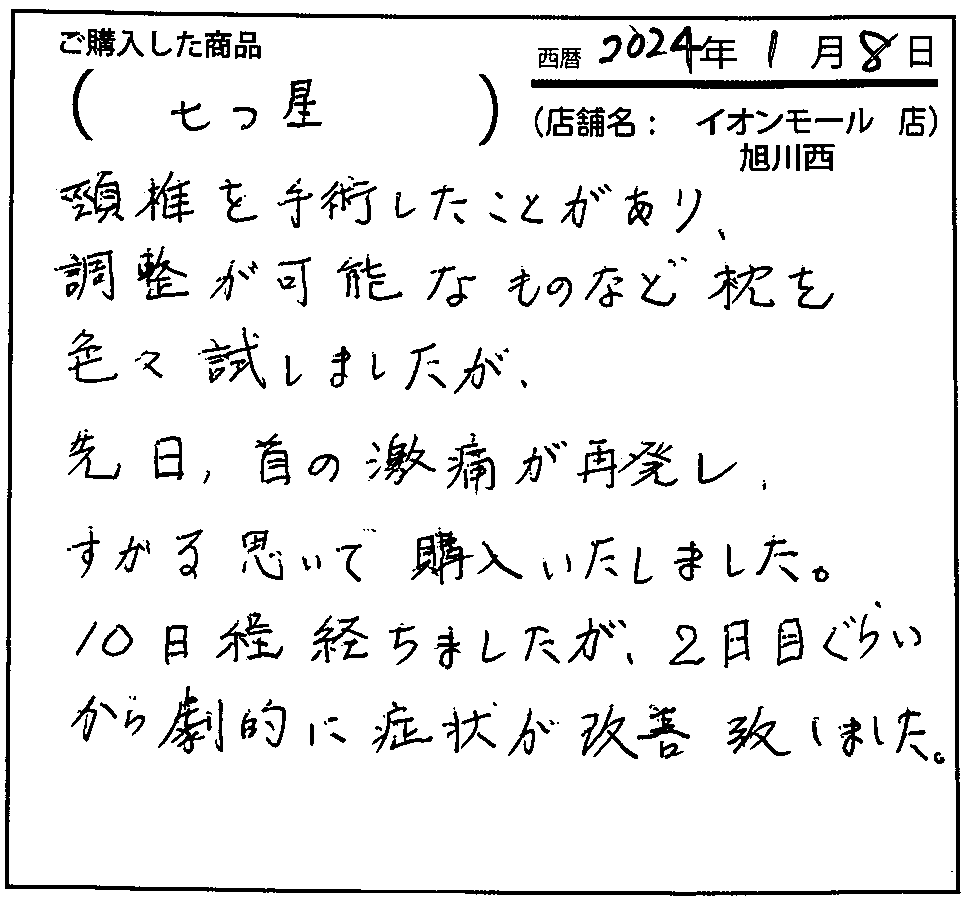 ご購入した商品
西暦 2024年 1月8日
( 七つ星 )
(店舗名： イオンモール 店)
旭川西
頸椎を手術したことがあり、
調整が可能なものなど枕を
色々試しましたが、
先日、首の激痛が再発し、
すがる思いで購入いたしました。
10日経経ちましたが、2日目ぐらい
から劇的に症状が改善致しました。